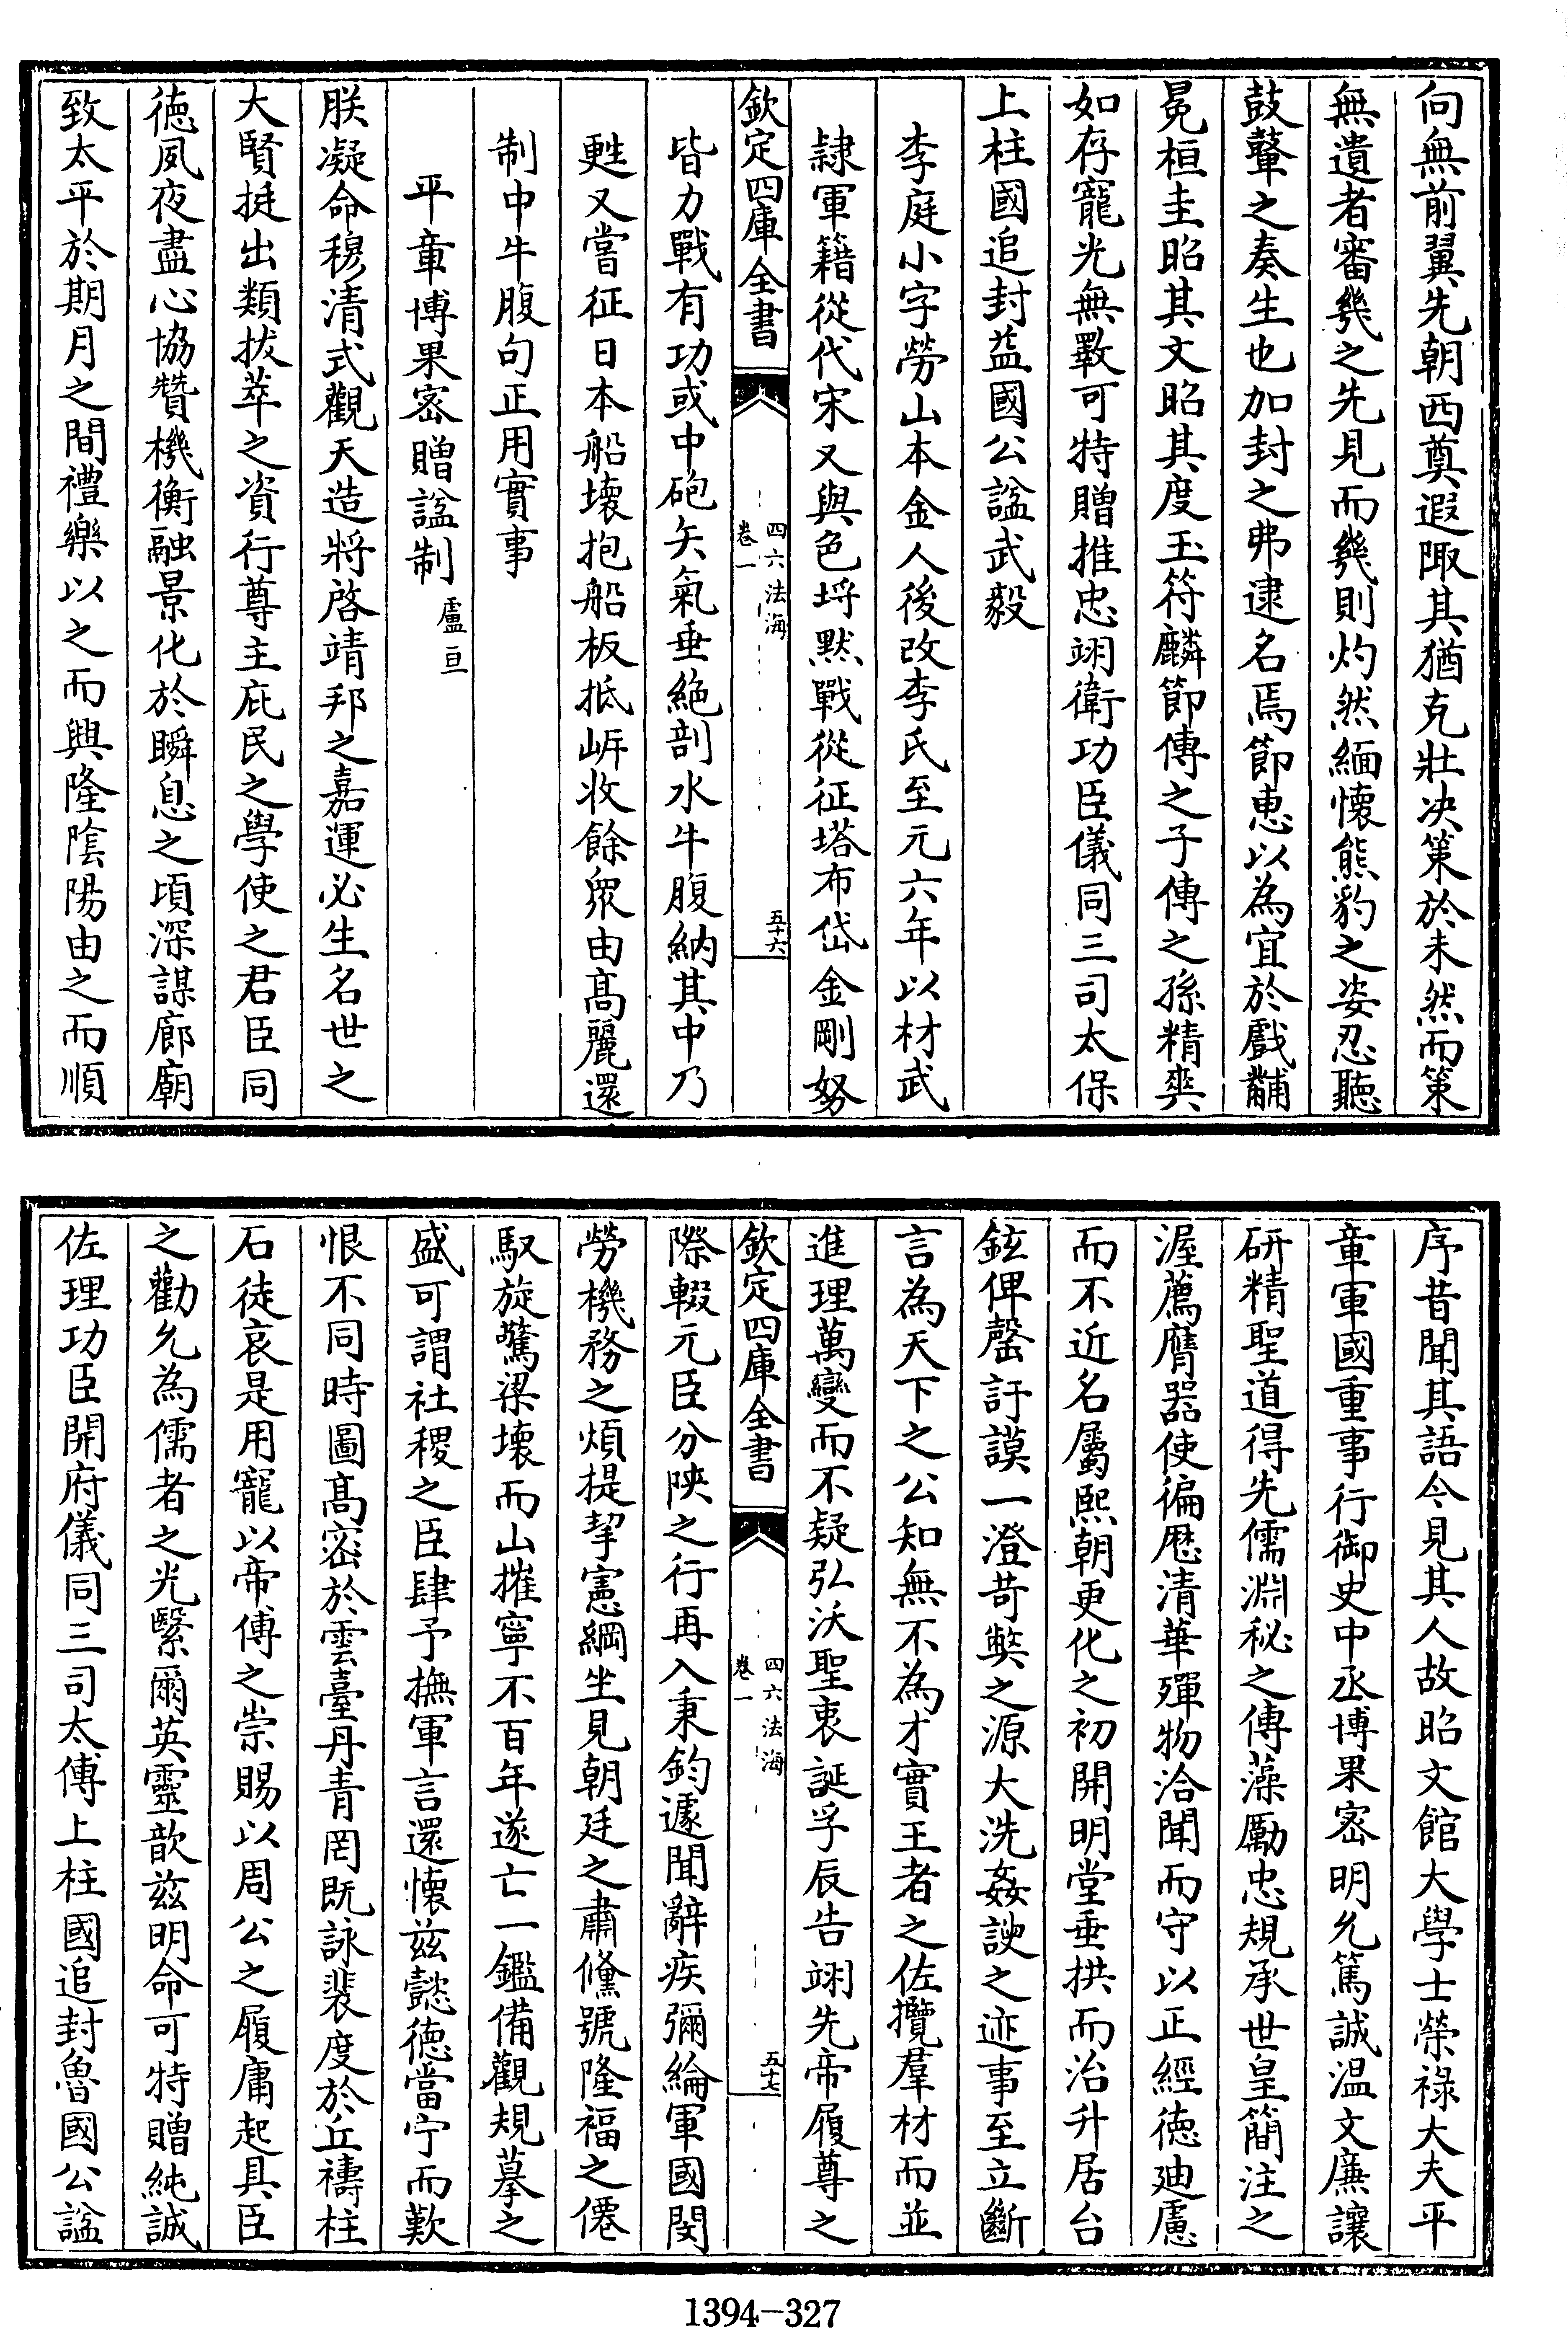 向無前翼先朝西奠遐陬其猶克壯決策於未然而策
無遺者審幾之先見而幾則灼然緬懷熊豹之姿忍聽
鼓鼙之奏生也加封之弗逮名焉節惠以為宜於戲黼
冕桓圭昭其文昭其度玉符麟節傳之子傳之孫精爽
如存寵光無斁可特贈推忠翊衛功臣儀同三司太保
上柱國追封益國公諡武毅
李庭小字勞山本金人後改李氏至元六年以材武
隷軍籍從代宋又與色埒黙戰從征塔布岱金剛努
欽定四庫全書
四六法海
卷一
五十六
皆力戰有功或中砲矢氣垂絶剖水牛腹納其中乃
甦又嘗征日本船壞抱船板抵岍收餘衆由髙麗還
制中牛腹句正用實事
平章博果密贈諡制 盧亘
朕凝命穆清式觀天造將啓靖邦之嘉運必生名世之
大賢挺出類拔萃之資行尊主庇民之學使之君臣同
徳夙夜盡心協贊機衡融景化於瞬息之頃深謀廊廟
致太平於期月之間禮樂以之而興隆隂陽由之而順
序昔聞其語今見其人故昭文館大學士榮祿大夫平
章軍國重事行御史中丞博果密明允篤誠温文㢘讓
研精聖道得先儒淵秘之傳藻勵忠規承世皇簡注之
渥薦膺器使徧歴清華殫物洽聞而守以正經徳廸慮
而不近名屬熙朝更化之初開明堂垂拱而治升居台
鉉俾罄訏謨一澄苛弊之源大洗姦諛之迹事至立斷
言為天下之公知無不為才實王者之佐攬羣材而並
進理萬變而不疑弘沃聖衷誕孚辰告翊先帝履尊之
欽定四庫全書
四六法海
卷一
五十七
際輟元臣分陜之行再入秉鈞遽聞辭疾彌綸軍國閔
勞機務之煩提挈憲綱坐見朝廷之肅儵號隆福之僊
馭旋驚梁壞而山摧寧不百年遂亡一鑑備觀規摹之
盛可謂社稷之臣肆予撫軍言還懐兹懿徳當宁而歎
恨不同時圖髙密於雲臺丹青罔既詠裴度於丘禱柱
石徒哀是用寵以帝傅之崇賜以周公之履庸起具臣
之勸允為儒者之光繄爾英靈歆兹明命可特贈純誠
佐理功臣開府儀同三司太傅上柱國追封魯國公諡
1394-327